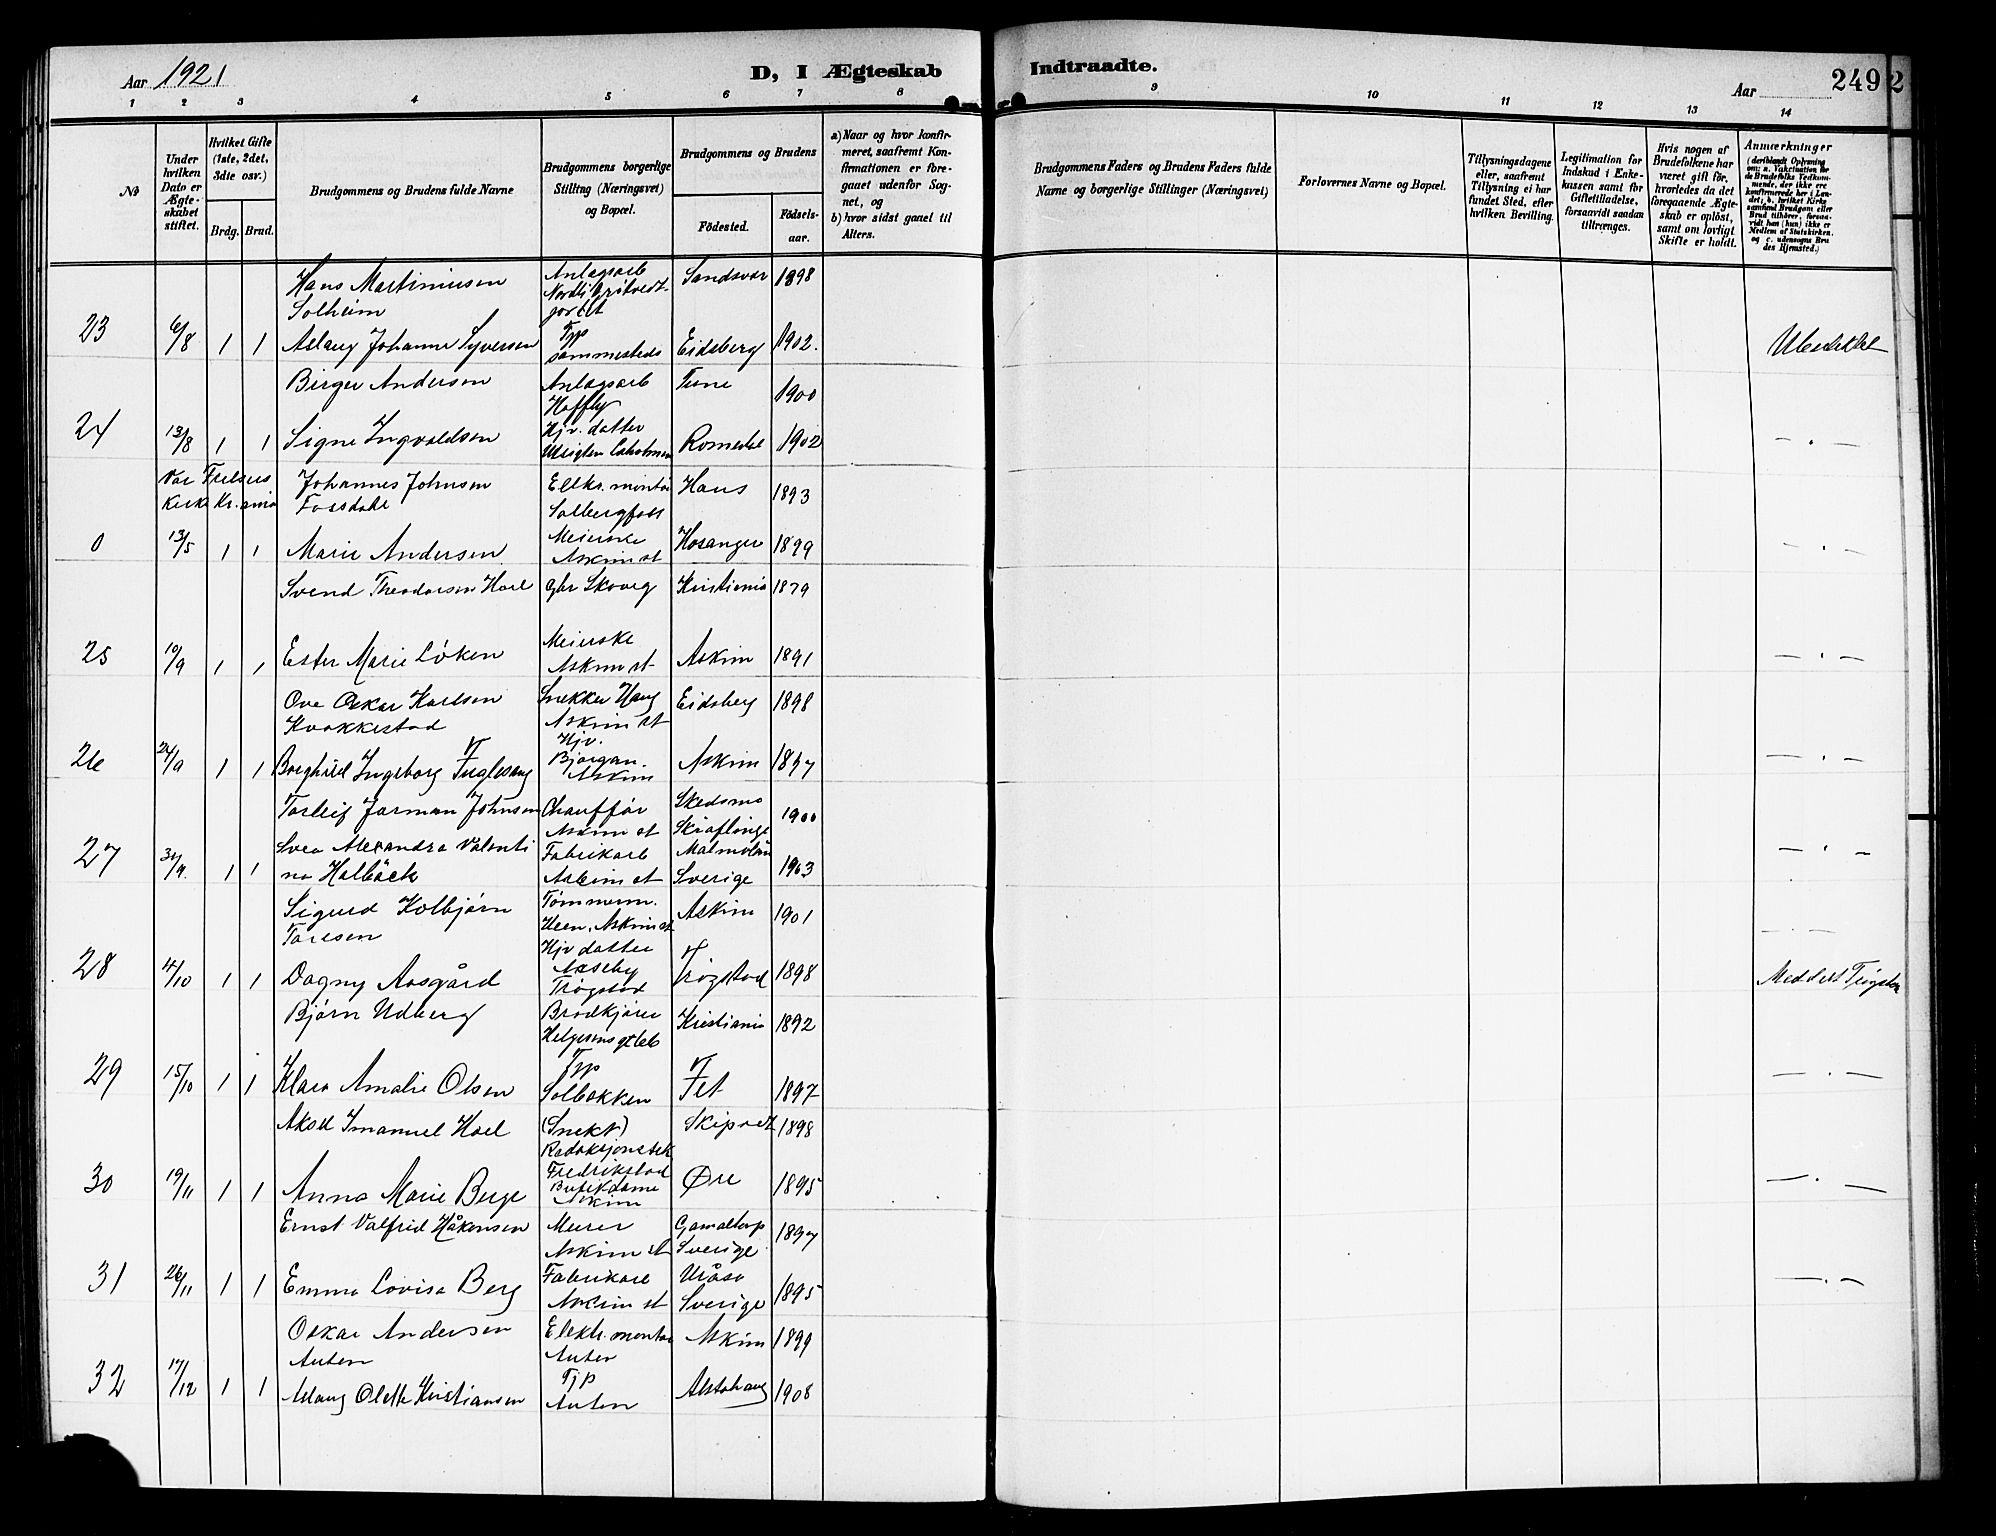 Aar 1921
D, I Ægteskab
Indtraadte.
Aar
249
2
1 2 3 4 5 6 7 8 9 10 11 12 13 14
No
Under hvilken Dato er Ægteskabet stiftet.
Hvilket Gifte (1ste, 2det, 3die osv.)
Brdg. Brud.
Brudgommens og Brudens fulde Navne
Brudgommens borgerlige Stilling (Næringsvei) og Bopæl.
Brudgommens og Brudens
Fødested.
Fødselsaar.
a) Naar og hvor konfirmeret, saafremt Konfirmationen er foregaaet udenfor Sognet, og
b) hvor sidst gaaet til Alters.
Brudgommens Faders og Brudens Faders fulde Navne og borgerlige Stillinger (Næringsvei)
Forlovernes Navne og Bopæl.
Tillysningsdagene eller, saafremt Tillysning ei har fundet Sted, efter hvilken Bevilling.
Legitimation for Indskud i Enkekassen samt for Giftetilladelse, forsaavidt saadan tiltrænges.
Hvis nogen af Brudefolkene har været gift før, hvorledes da det foregaaende Ægteskab er opløst, samt om lovligt Skifte er holdt.
Anmærkninger
(deriblandt Oplysning om: a. Vaccination for de Brudefolks Vedkommende, der ikke ere konfirmerede her i Landet; b. hvilket Kirkesamfund Brudgom eller Brud tilhører, forsaavidt han (hun) ikke er Medlem af Statskirken, og c. udensogns Brudes Hjemsted.)
Hans Martiniusen Anlægsarb Sandsvær 1898
Solheim
23 6/8 1 1 Aslaug Johanne Syversen Tjp sammesteds Eidsberg 1902.
Birger Andersen Anlægsarb Tune 1900
24 13/8 1 1 Signe Ingvaldsen Hjv. datter Romedal 1902 — . —
Vor Frelsers Johannes Johnsen Elktr. montør Haus 1893
Kirke Kr.ania Fossdale Solbergfoss
0 13/5 1 1 Marie Andersen Meierske Askim st Hosanger 1899 — . —
Svend Theodorsen Hoel Gbr Skoveg Kristiania 1879
25 10/9 1 1 Ester Marie Løken Meierske Askim st Askim 1891 — . —
Ove Oskar Karlsen Snekker Haug Eidsberg 1898
Kvakkestad Askim st
26 24/9 1 1 Borghild Ingeborg Fuglesang Hjv. Bjørgan. Askim Askim 1897 — . —
Torleif Jarman Johnsen Chauffør Askim st Skedsmo 1900
27 1 1 Svea Alexandra Valenti Fabrikarb Malmølän 1903 — . —
na Holbäck Askim st Sverige
Sigurd Kolbjørn Tømmerm. Askim 1901
Toresen Heen, Askim st — . —
28 4/10 1 1 Dagny Aasgård Hjv datter Trøgstad Trøgstad 1898 Meddelt Trøgstad
Bjørn Udberg Brødkjører Kristiania 1892
29 15/10 1 1 Klara Amalie Olsen Tjp Solbakken Fet 1897 — . —
Aksel Imanuel Hoel (Snekk) Skiptvet 1898
30 19/11 1 1 Anna Marie Berge Fredrikstad Butikdame Askim Øre 1895 — . —
Ernst Valfrid Håkensen Murer Askim st Gamaltorp Sverige 1897
31 26/11 1 1 Emma Lovisa Berg Fabrikarb Askim st Uråsa Sverige 1895 — . —
Oskar Andersen Elektr. montør Askim 1899
Auten Auten
32 17/12 1 1 Aslaug Olette Kristiansen Tjp Auten Alstahaug 1908